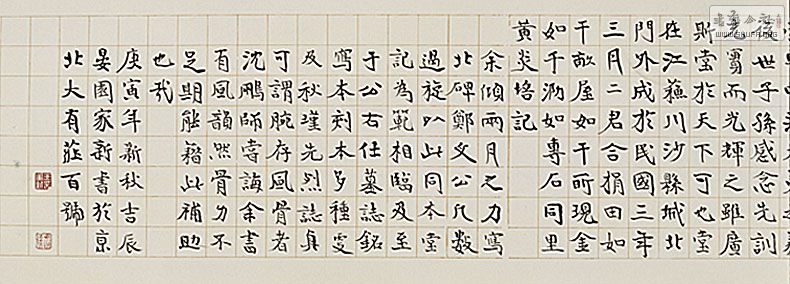 後世子孫感念先訓
而光輝之雖廣
斯堂於天下可也堂
在江蘇川沙縣城北
門外成於民國三年
三月二君合捐田如
干畝屋如干所現金
如干泐如專石同里
黃炎培記
余傾兩月之力寫
北碑鄭文公凡數
過旋以此同本堂
記為範相臨及至
于公右任墓誌銘
寫本刻本多種雯
及秋瑾先烈誌真
可謂腕存風骨者
沈鵬師嘗誨余書
有風韻然骨力不
足期能藉此補助
也哉
庚寅年新秋吉辰
晏園家新書於京
北大有莊百號